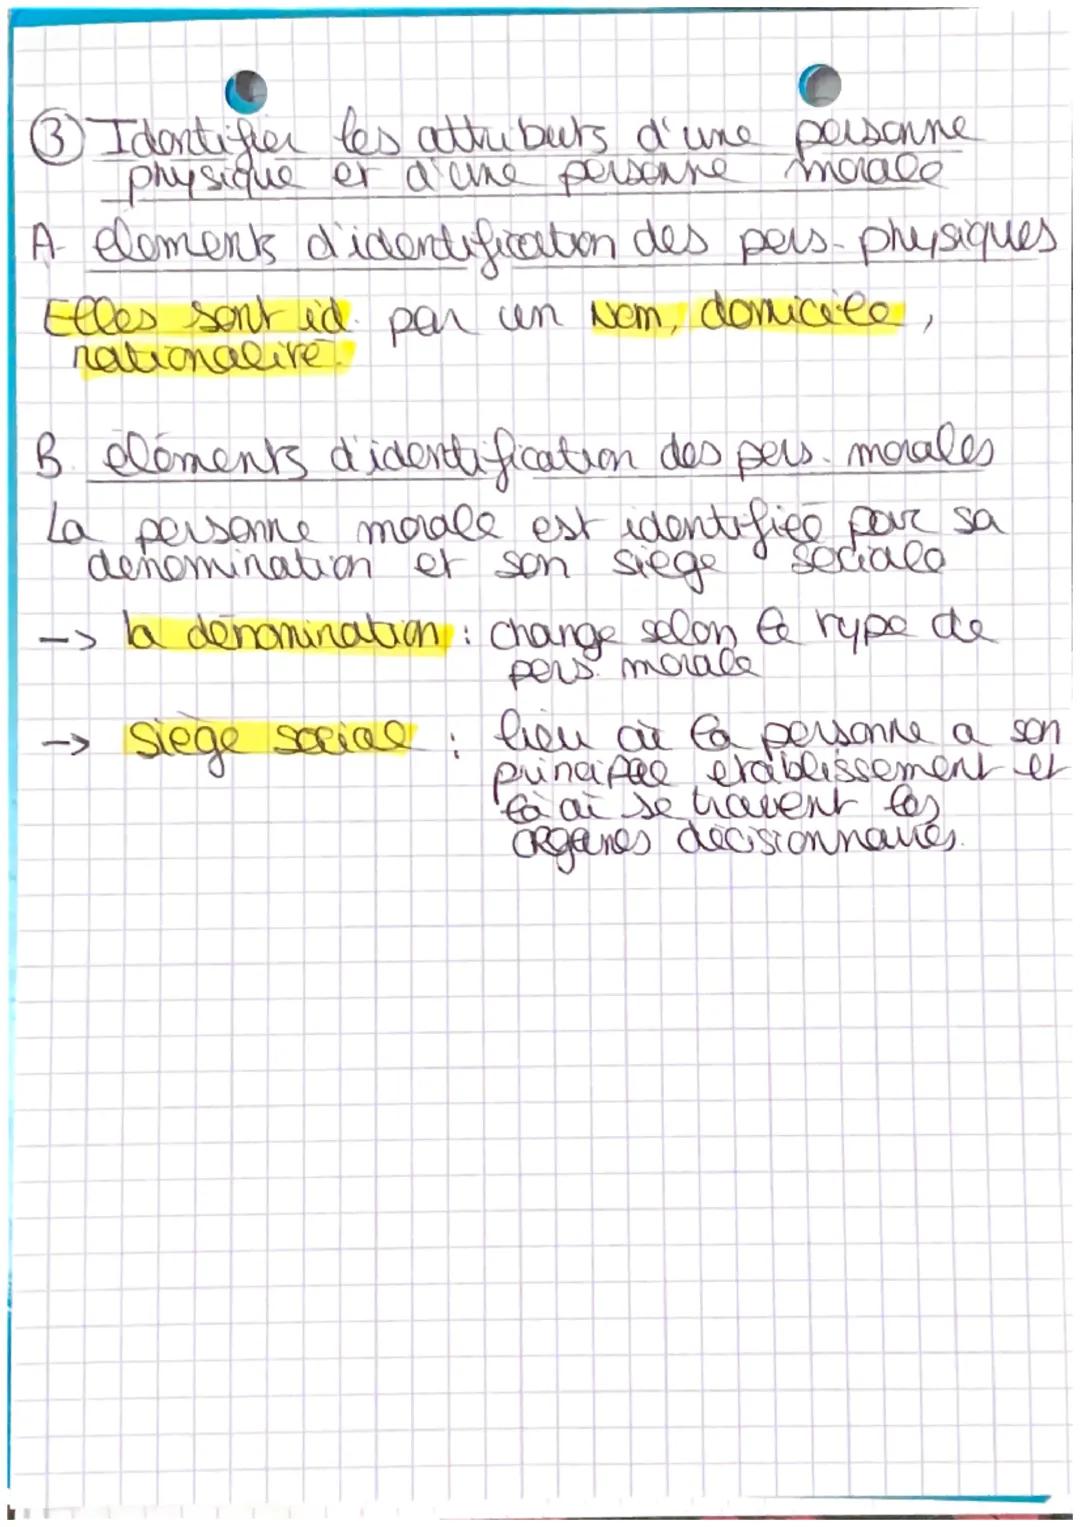 ③ Identifier les attributs d'une personne
physique et d'une personne morale
A- elements d'identification des pers. physiques
Elles sont id. par un nom, domicile,
nationalité.
B. éléments d'identification des pers. morales
La personne morale est identifiée par sa
denomination et son siège sociale
-> la dénomination : change selon le type de
pers. morale
-> siège social : lieu où la personne a son
principal etablissement et
là où se trouvent les
organes décisionnaires.